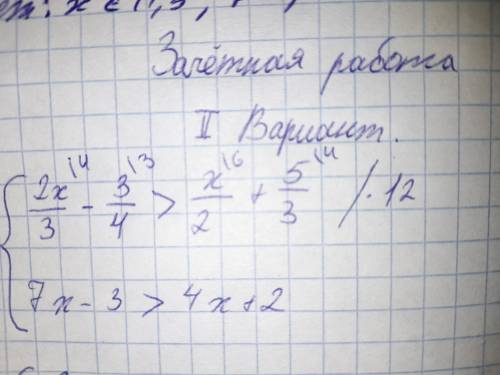 Зачётная работа
II Вариант.
{ 2x/3 \4 - 3/4 \3 > x/2 \6 + 5/3 \4 /·12
7x - 3 > 4x + 2